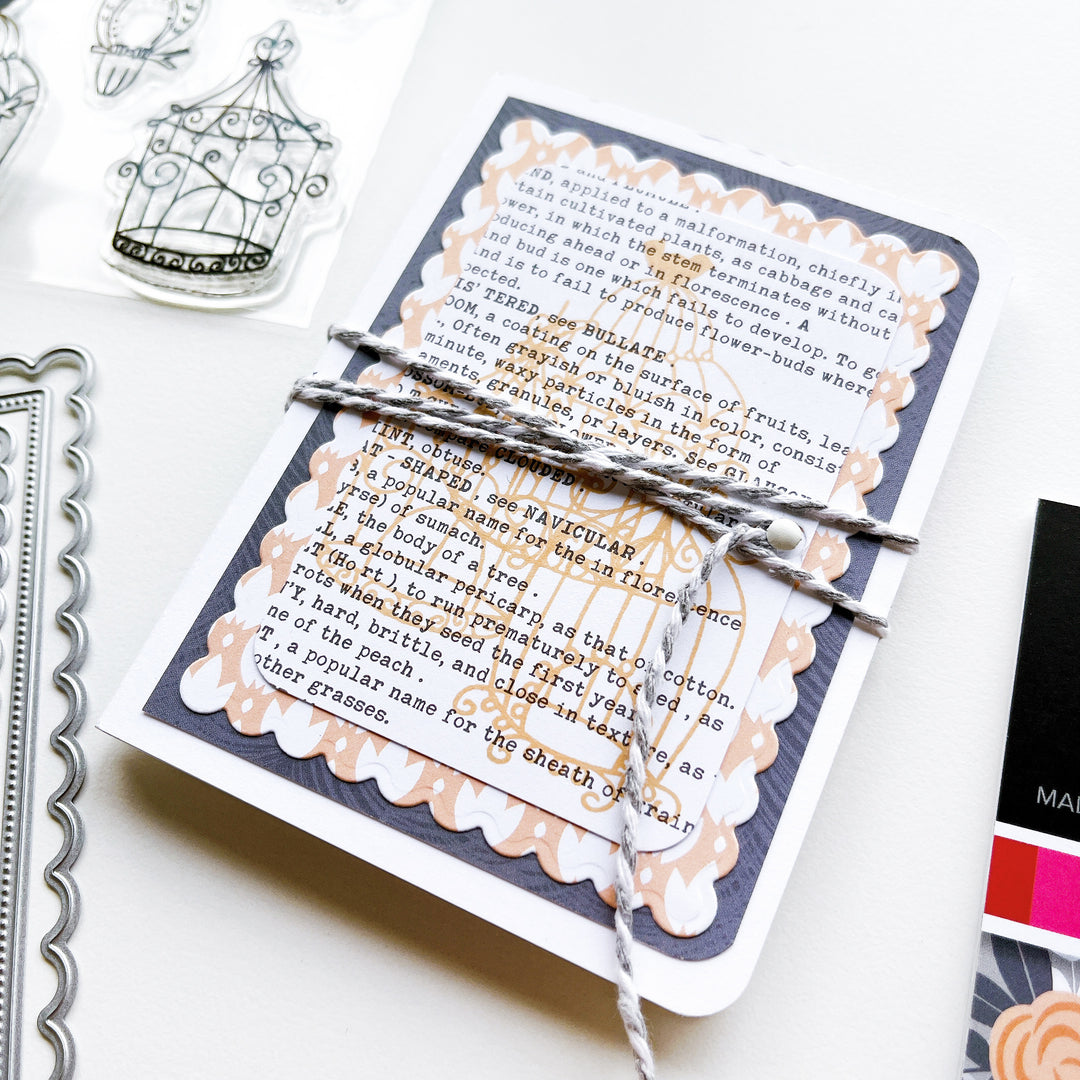 and
ND, applied to a malformation, chiefly i
tain cultivated plants, as cabbage and ca
ower, in which the stem terminates without
oducing ahead or in florescence . A
ind bud is one which fails to develop. To g
ind is to fail to produce flower-buds where
pected.
IS' TERED, see BULLATE
OOM, a coating on the surface of fruits, lea
., Often grayish or bluish in color, consis
minute, waxy particles in the form of
aments, granules, or layers. See GLAUCO
compare CLOUDED .
INT, obtuse.
AT - SHAPED, see NAVICULAR .
, a popular name for the in florescence
yrse) of sumach.
LE, the body of a tree .
L, a globular pericarp, as that of cotton.
T (Ho rt.) to run prematurely to seed , as
rots when they seed the first year
Y, hard, brittle, and close in texture, as
ne of the peach .
T , a popular name for the sheath of rain
other grasses.
MAI